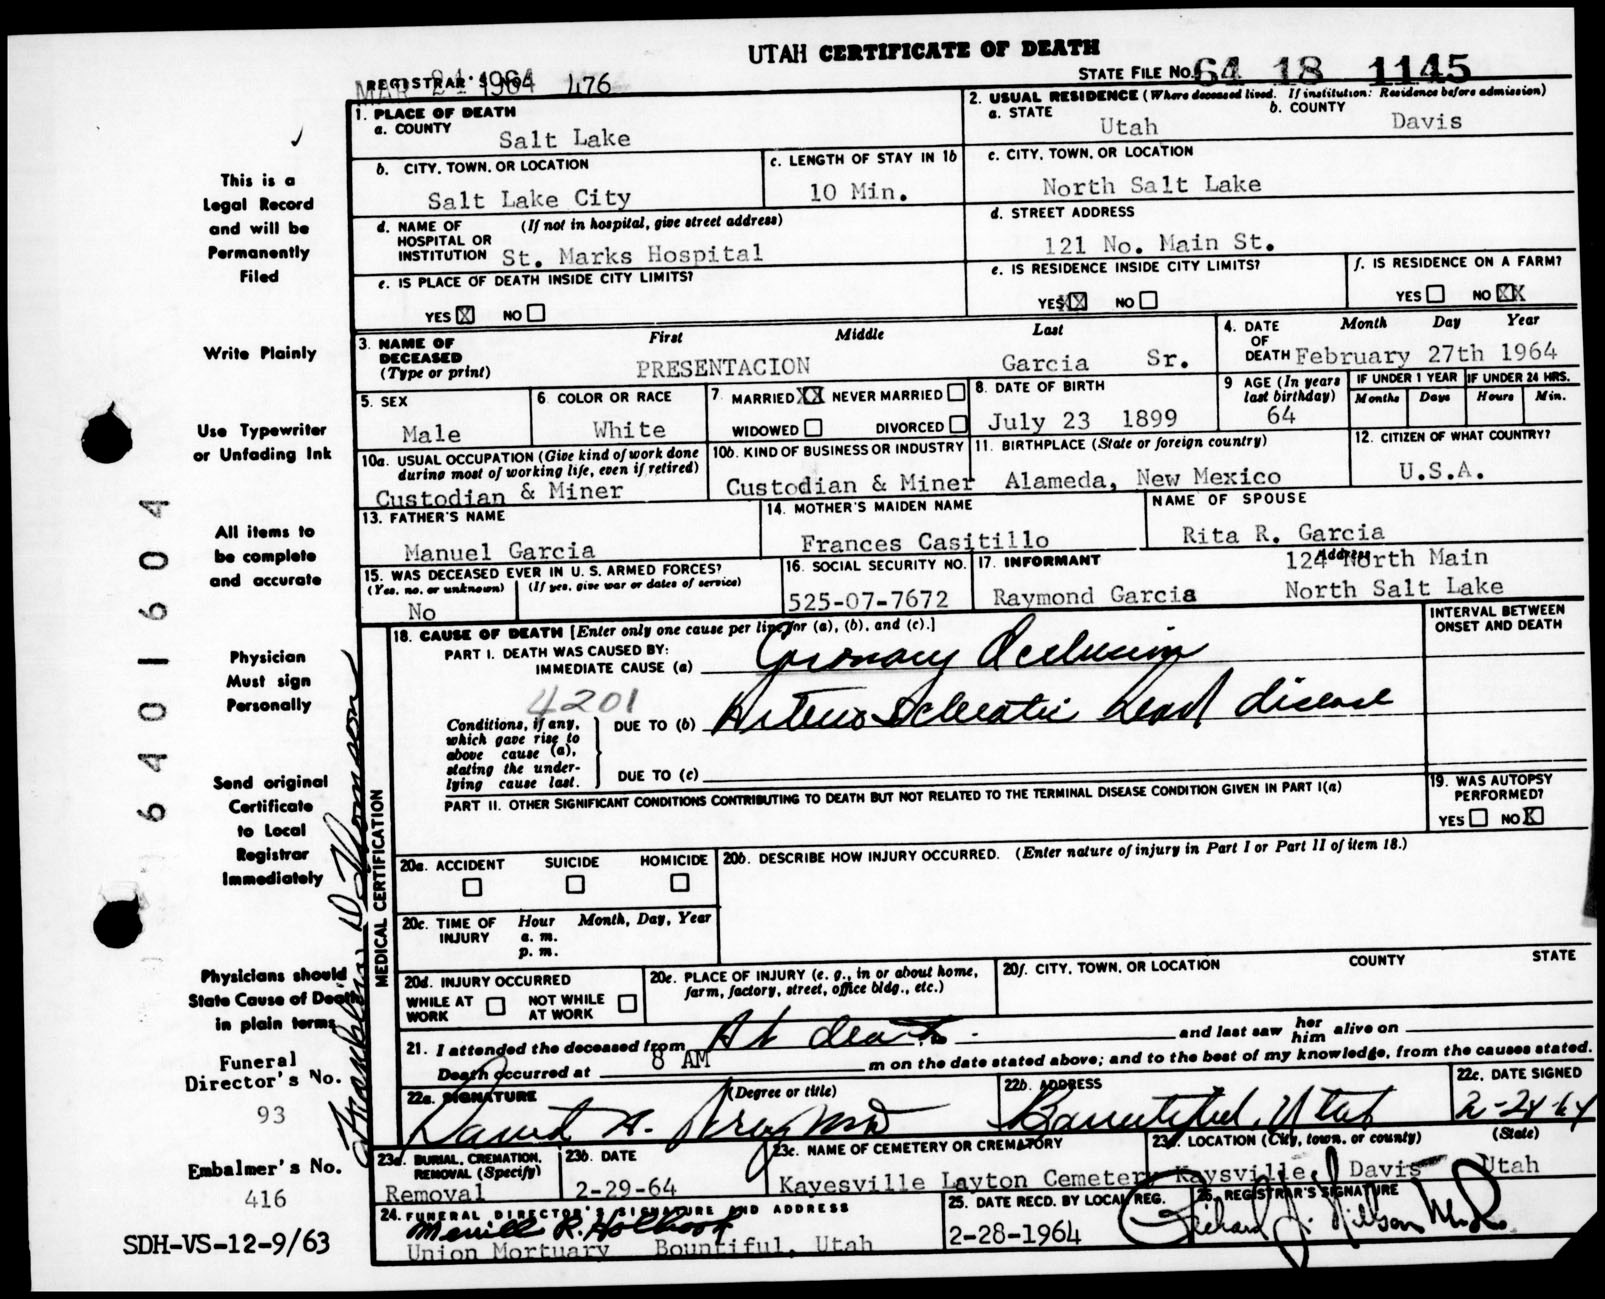 UTAH CERTIFICATE OF DEATH
REGISTRAR'S NO. 476
STATE FILE NO. 64 18 1145
1. PLACE OF DEATH
a. COUNTY
Salt Lake
2. USUAL RESIDENCE (Where deceased lived. If institution: Residence before admission)
a. STATE
Utah
b. COUNTY
Davis
b. CITY, TOWN, OR LOCATION
Salt Lake City
c. LENGTH OF STAY IN 1b
10 Min.
c. CITY, TOWN, OR LOCATION
North Salt Lake
d. NAME OF HOSPITAL OR INSTITUTION
(If not in hospital, give street address)
St. Marks Hospital
d. STREET ADDRESS
121 No. Main St.
e. IS PLACE OF DEATH INSIDE CITY LIMITS?
YES X NO
e. IS RESIDENCE INSIDE CITY LIMITS?
YES XX NO
f. IS RESIDENCE ON A FARM?
YES NO XX
3. NAME OF DECEASED (Type or print)
First Middle Last
PRESENTACION Garcia Sr.
4. DATE OF DEATH
Month Day Year
February 27th 1964
5. SEX
Male
6. COLOR OR RACE
White
7. MARRIED XX NEVER MARRIED
WIDOWED DIVORCED
8. DATE OF BIRTH
July 23 1899
9 AGE (In years last birthday)
64
IF UNDER 1 YEAR
Months Days
IF UNDER 24 HRS.
Hours Min.
10a. USUAL OCCUPATION (Give kind of work done during most of working life, even if retired)
Custodian & Miner
10b. KIND OF BUSINESS OR INDUSTRY
Custodian & Miner
11. BIRTHPLACE (State or foreign country)
Alameda, New Mexico
12. CITIZEN OF WHAT COUNTRY?
U.S.A.
13. FATHER'S NAME
Manuel Garcia
14. MOTHER'S MAIDEN NAME
Frances Casitillo
NAME OF SPOUSE
Rita R. Garcia
15. WAS DECEASED EVER IN U. S. ARMED FORCES?
(Yes, no, or unknown) (If yes, give war or dates of service)
No
16. SOCIAL SECURITY NO.
525-07-7672
17. INFORMANT
Raymond Garcia
Address
124 North Main
North Salt Lake
MEDICAL CERTIFICATION
18. CAUSE OF DEATH [Enter only one cause per line for (a), (b), and (c).]
INTERVAL BETWEEN ONSET AND DEATH
PART I. DEATH WAS CAUSED BY:
IMMEDIATE CAUSE (a) Coronary Occlusion
4201
Conditions, if any, which gave rise to above cause (a), stating the under-lying cause last.
DUE TO (b) Arterio Sclerotic heart disease
DUE TO (c)
PART II. OTHER SIGNIFICANT CONDITIONS CONTRIBUTING TO DEATH BUT NOT RELATED TO THE TERMINAL DISEASE CONDITION GIVEN IN PART I(a)
19. WAS AUTOPSY PERFORMED?
YES NO X
20a. ACCIDENT SUICIDE HOMICIDE
20b. DESCRIBE HOW INJURY OCCURRED. (Enter nature of injury in Part I or Part II of item 18.)
20c. TIME OF INJURY
Hour Month, Day, Year
a. m.
p. m.
20d. INJURY OCCURRED
WHILE AT WORK NOT WHILE AT WORK
20e. PLACE OF INJURY (e. g., in or about home, farm, factory, street, office bldg., etc.)
20f. CITY, TOWN, OR LOCATION COUNTY STATE
21. I attended the deceased from At death. and last saw her him alive on
Death occurred at 8 AM m on the date stated above; and to the best of my knowledge, from the causes stated.
22a. SIGNATURE (Degree or title)
David A.
22b. ADDRESS
Bountiful, Utah
22c. DATE SIGNED
2-28-64
23a. BURIAL, CREMATION, REMOVAL (Specify)
Removal
23b. DATE
2-29-64
23c. NAME OF CEMETERY OR CREMATORY
Kayesville Layton Cemetery
23d. LOCATION (City, town, or county) (State)
Kaysville, Davis Utah
24. FUNERAL DIRECTOR'S SIGNATURE AND ADDRESS
Merrill R. Holbrook
Union Mortuary Bountiful, Utah
25. DATE RECD. BY LOCAL REG.
2-28-1964
26. REGISTRAR'S SIGNATURE
Richard J. Nilson M.D.
This is a
Legal Record
and will be
Permanently
Filed
Write Plainly
Use Typewriter
or Unfading Ink
All items to
be complete
and accurate
Physician
Must sign
Personally
Send original
Certificate
to Local
Registrar
Immediately
Physicians should
State Cause of Death
in plain terms
Funeral
Director's No.
93
Embalmer's No.
416
SDH-VS-12-9/63
6401604
Franklin D. Thomson